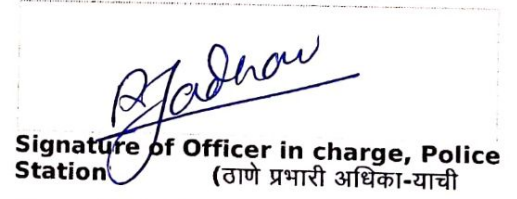 RJadhav
Signature of Officer in charge, Police
Station (ठाणे प्रभारी अधिका-याची